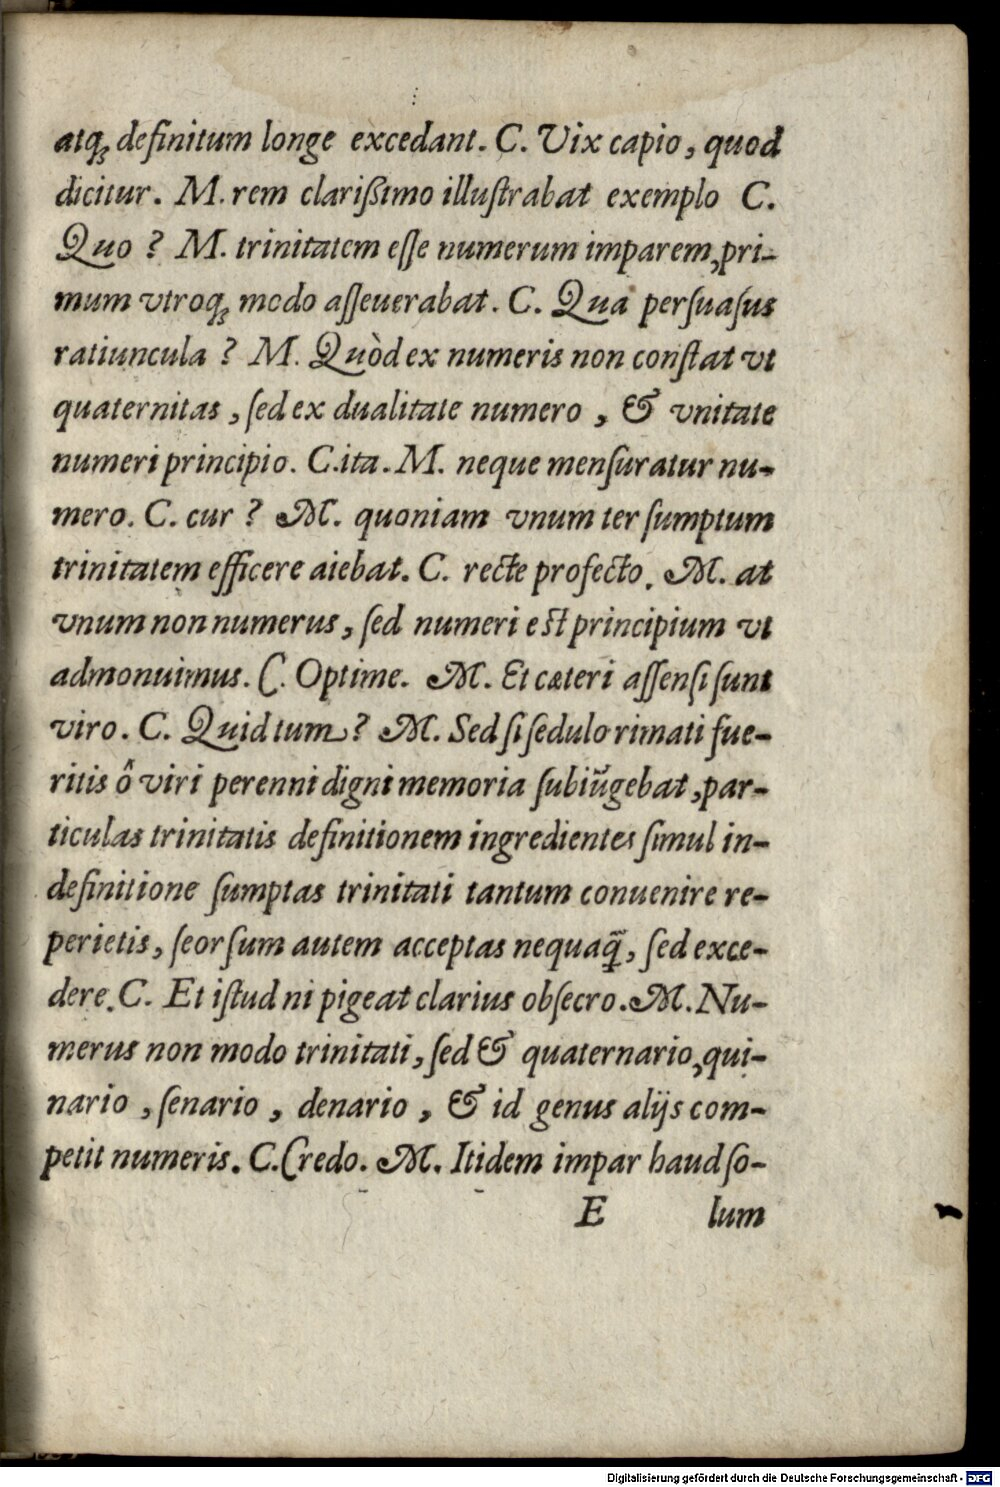 atq; definitum longe excedant. C. Vix capio, quod
dicitur. M. rem clarißimo illuſtrabat exemplo C.
Quo ? M. trinitatem eſſe numerum imparem, pri-
mum vtroq; modo aſſeuerabat. C. Qua perſuaſus
ratiuncula ? M. Quòd ex numeris non conſtat vt
quaternitas, ſed ex dualitate numero, & vnitate
numeri principio. C. ita. M. neque menſuratur nu-
mero. C. cur ? M. quoniam vnum ter ſumptum
trinitatem efficere aiebat. C. recte profecto. M. at
vnum non numerus, ſed numeri eſt principium vt
admonuimus. C. Optime. M. Et cæteri aſſenſi ſunt
viro. C. Quid tum ? M. Sed ſi ſedulo rimati fue-
ritis ô viri perenni digni memoria ſubiūgebat, par-
ticulas trinitatis definitionem ingredientes ſimul in-
definitione ſumptas trinitati tantum conuenire re-
perietis, ſeorſum autem acceptas nequaq̄, ſed exce-
dere. C. Et iſtud ni pigeat clarius obſecro. M. Nu-
merus non modo trinitati, ſed & quaternario, qui-
nario, ſenario, denario, & id genus alijs com-
petit numeris. C. Credo. M. Itidem impar haud ſo-
E lum
Digitalisierung gefördert durch die Deutsche Forschungsgemeinschaft - DFG